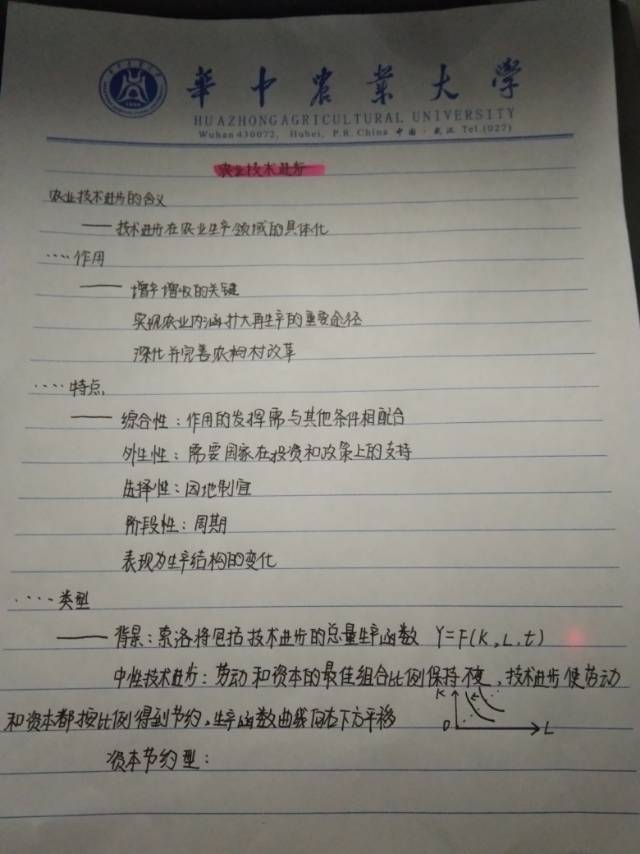 華中農業大學
HUAZHONG AGRICULTURAL UNIVERSITY
Wuhan 430072, Hubei, P.R. China 中国·武汉 Tel.(027)
农业技术进步
农业技术进步的含义
——技术进步在农业生产领域的具体化
····作用
——增产增收的关键
实现农业内涵扩大再生产的重要途径
深化并完善农村改革
····特点
——综合性：作用的发挥需与其他条件相配合
外生性：需要国家在投资和政策上的支持
选择性：因地制宜
阶段性：周期
表现为生产结构的变化
····类型
——背景：索洛将包括技术进步的总量生产函数 Y=F(K,L,t)
中性技术进步：劳动和资本的最佳组合比例保持不变，技术进步使劳动
和资本都按比例得到节约，生产函数曲线向左下方平移
K
0
L
资本节约型：